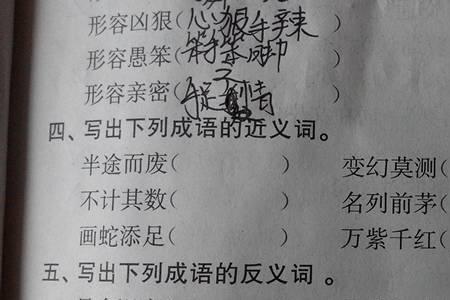 形容凶狠(心狠手辣
形容愚笨(笨手笨脚
形容亲密(
四、写出下列成语的近义词。
半途而废(　　) 变幻莫测(
不计其数(　　) 名列前茅(
画蛇添足(　　) 万紫千红(
五、写出下列成语的反义词。